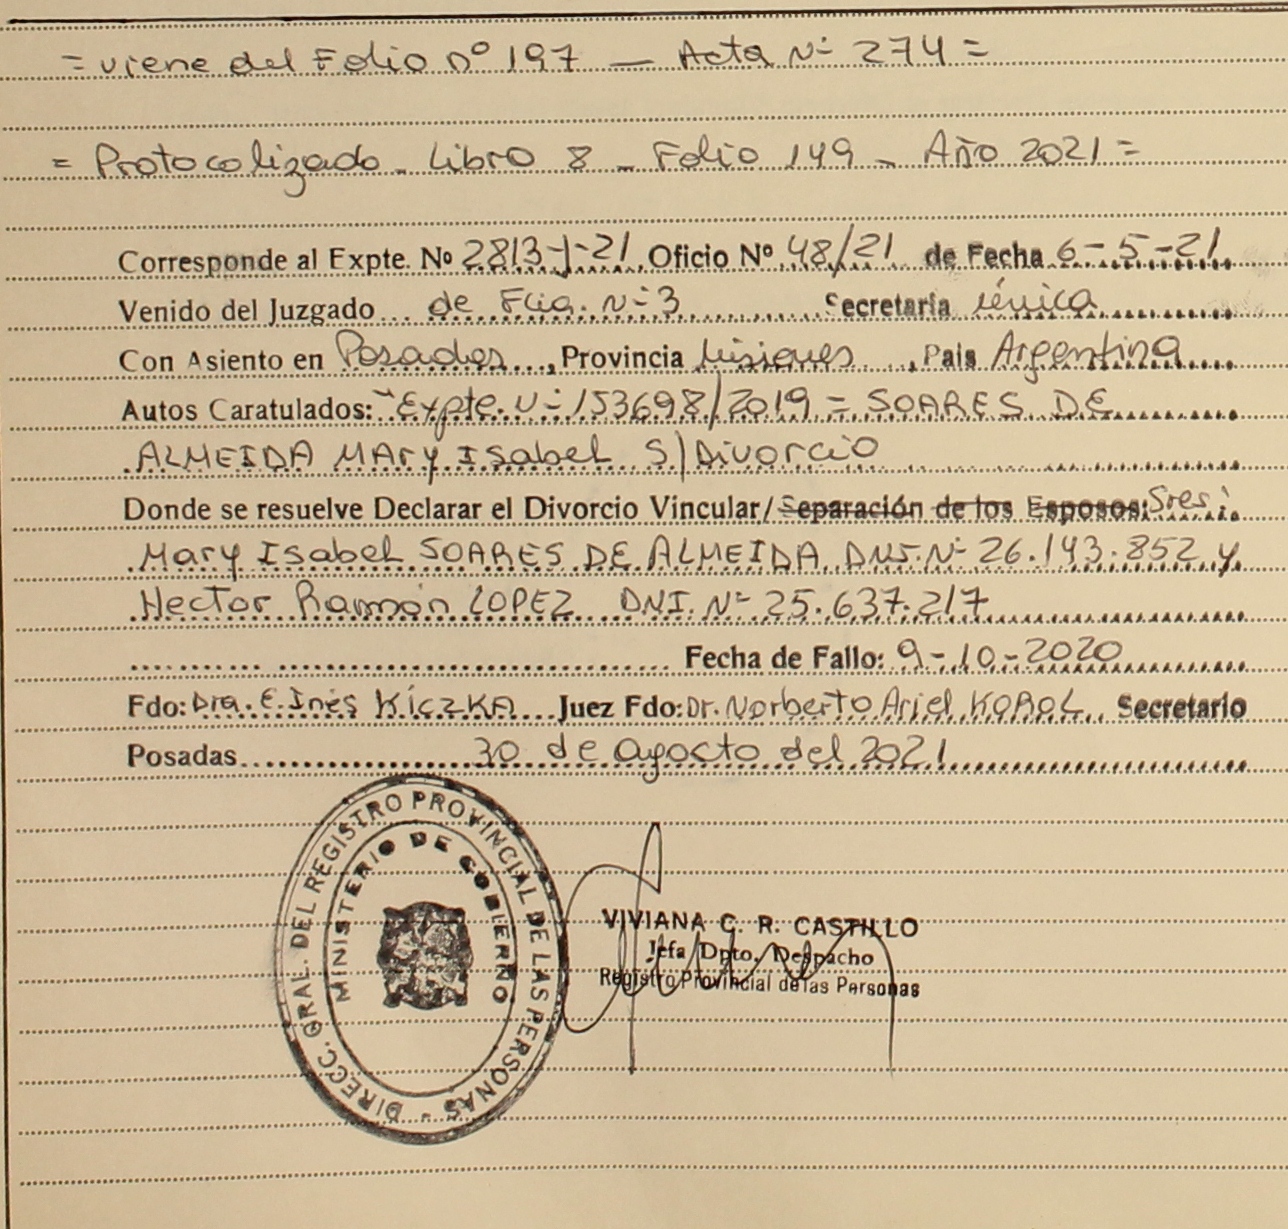 = viene del Folio nº 197 — Acta Nº 274 =
= Protocolizado - Libro 8 - Folio 149 - Año 2021 =
Corresponde al Expte. Nº 2813-J-21 Oficio Nº 48/21 de Fecha 6-5-21
Venido del Juzgado de Flia. Nº 3 Secretaría única
Con Asiento en Posadas, Provincia Misiones, País Argentina
Autos Caratulados: "Expte. Nº 153698/2019 = SOARES DE
ALMEIDA MARY ISabel S/Divorcio
Donde se resuelve Declarar el Divorcio Vincular/Separación de los Esposos: Sres:
Mary Isabel SOARES DE ALMEIDA DNI. Nº 26.143.852 y
Hector Ramón LOPEZ DNI. Nº 25.637.217
Fecha de Fallo: 9-10-2020
Fdo: Dra. E. Inés KiczKA Juez Fdo: Dr. Norberto Ariel KOROL Secretario
Posadas 30 de agosto del 2021
DIRECC. GRAL. DEL REGISTRO PROVINCIAL DE LAS PERSONAS -
MINISTERIO DE GOBIERNO
VIVIANA C. R. CASTILLO
Jefa Dpto. Despacho
Registro Provincial de las Personas